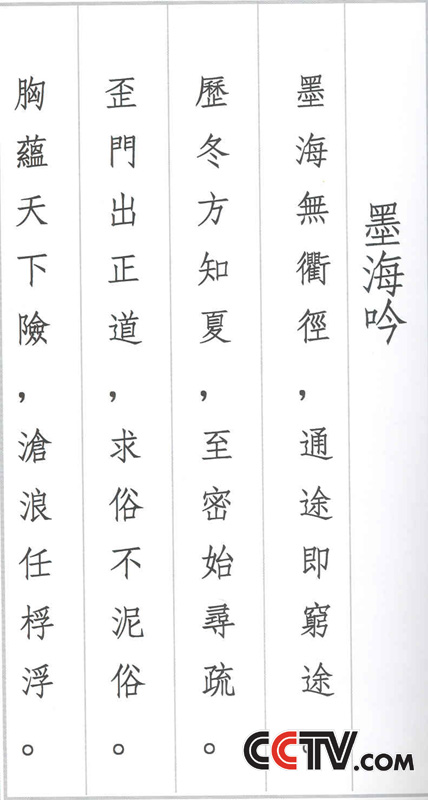 墨海吟
墨海無衢徑，通途即窮途。
歷冬方知夏，至密始尋疏。
歪門出正道，求俗不泥俗。
胸蘊天下險，滄浪任桴浮。
CCTV.COM